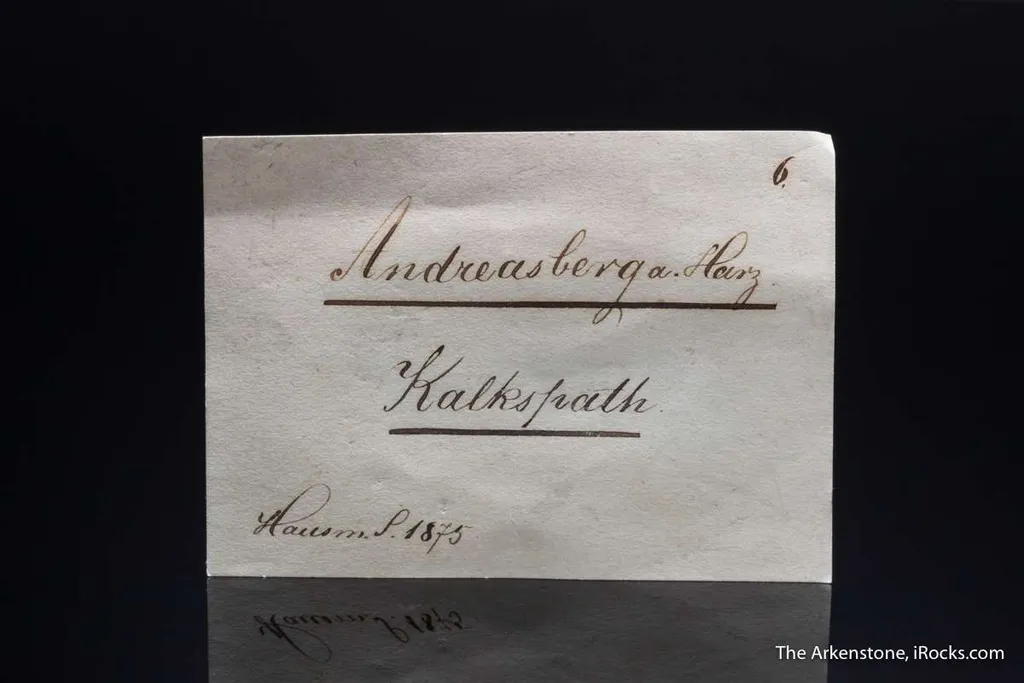 6.
Andreasberg a. Harz.
Kalkspath.
Hausm. S. 1875
The Arkenstone, iRocks.com